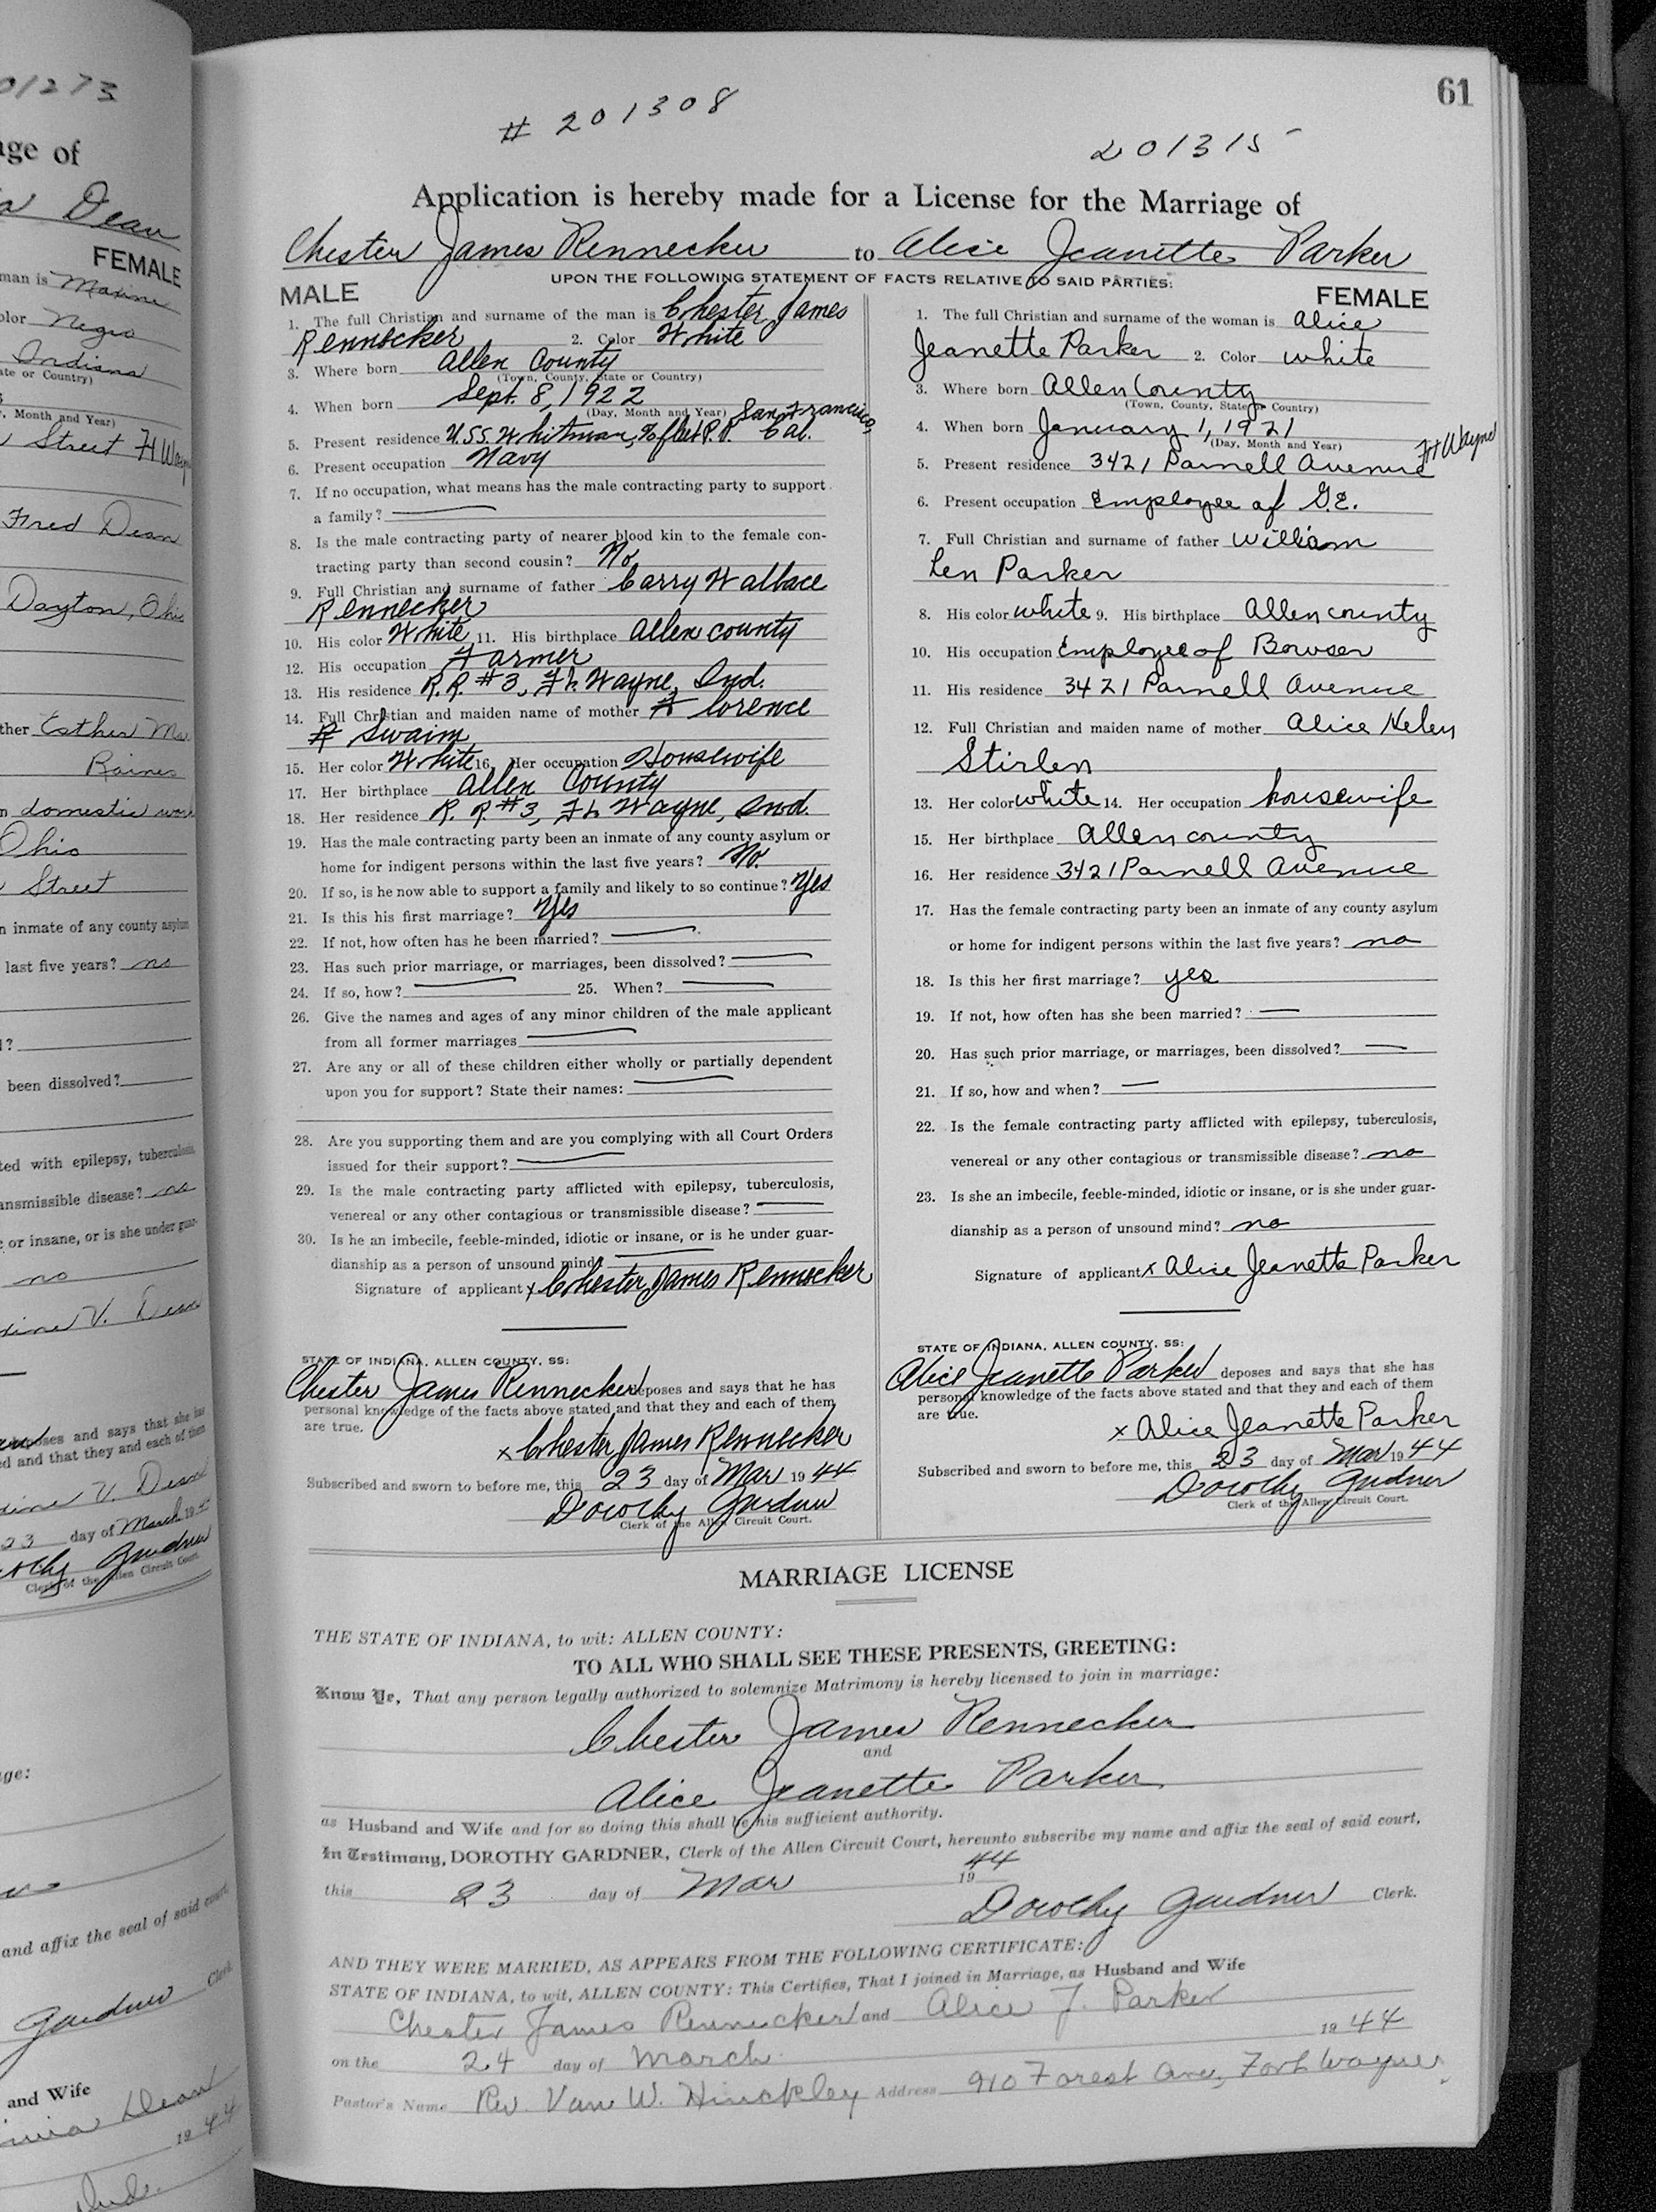 01273
age of
a Dean
FEMALE
man is Maxine
olor Negro
Indiana
ate or Country)
, Month and Year)
Street Ft Wayne
Fred Dean
Dayton, Ohio
ther Esther Mae
Raines
n domestic work
Ohio
Street
n inmate of any county asylum
last five years? no
l?
been dissolved?
ted with epilepsy, tuberculosis,
ansmissible disease? no
c or insane, or is she under guar-
no
xine V. Dean
deposes and says that she has
ed and that they and each of them
xine V. Dean
23 day of March 1944
othy Gardner
Clerk of the Allen Circuit Court.
ge:
and affix the seal of said court,
Gardner Clerk
and Wife
Dean
19 44
Ind.
61
# 201308
201315
Application is hereby made for a License for the Marriage of
Chester James Rennecker to Alice Jeanette Parker
UPON THE FOLLOWING STATEMENT OF FACTS RELATIVE TO SAID PARTIES:
MALE
1. The full Christian and surname of the man is Chester James
Rennecker 2. Color White
3. Where born Allen County
(Town, County, State or Country)
4. When born Sept. 8, 1922
(Day, Month and Year) San Francisco,
5. Present residence U.S.S. Whitman, % fleet P.O. Cal.
6. Present occupation Navy
7. If no occupation, what means has the male contracting party to support
a family?
8. Is the male contracting party of nearer blood kin to the female con-
tracting party than second cousin? No
9. Full Christian and surname of father Carry Wallace
Rennecker
10. His color White 11. His birthplace Allen county
12. His occupation Farmer
13. His residence R.R. #3, Ft. Wayne, Ind.
14. Full Christian and maiden name of mother Florence
R Swaim
15. Her color White 16. Her occupation Housewife
17. Her birthplace Allen County
18. Her residence R. R. #3, Ft. Wayne, Ind.
19. Has the male contracting party been an inmate of any county asylum or
home for indigent persons within the last five years? No.
20. If so, is he now able to support a family and likely to so continue? Yes
21. Is this his first marriage? Yes
22. If not, how often has he been married?
23. Has such prior marriage, or marriages, been dissolved?
24. If so, how? 25. When?
26. Give the names and ages of any minor children of the male applicant
from all former marriages
27. Are any or all of these children either wholly or partially dependent
upon you for support? State their names:
28. Are you supporting them and are you complying with all Court Orders
issued for their support?
29. Is the male contracting party afflicted with epilepsy, tuberculosis,
venereal or any other contagious or transmissible disease?
30. Is he an imbecile, feeble-minded, idiotic or insane, or is he under guar-
dianship as a person of unsound mind
Signature of applicant x Chester James Rennecker
STATE OF INDIANA, ALLEN COUNTY, SS:
Chester James Rennecker deposes and says that he has
personal knowledge of the facts above stated and that they and each of them
are true.
x Chester James Rennecker
Subscribed and sworn to before me, this 23 day of Mar 1944
Dorothy Gardner
Clerk of the Allen Circuit Court.
FEMALE
1. The full Christian and surname of the woman is Alice
Jeanette Parker 2. Color white
3. Where born Allen County
(Town, County, State or Country)
4. When born January 1, 1921
(Day, Month and Year) Ft Wayne
5. Present residence 3421 Parnell Avenue
6. Present occupation Employee of G.E.
7. Full Christian and surname of father William
Len Parker
8. His color white 9. His birthplace Allen county
10. His occupation Employee of Bowser
11. His residence 3421 Parnell Avenue
12. Full Christian and maiden name of mother Alice Helen
Stirlen
13. Her color white 14. Her occupation housewife
15. Her birthplace Allen county
16. Her residence 3421 Parnell Avenue
17. Has the female contracting party been an inmate of any county asylum
or home for indigent persons within the last five years? no
18. Is this her first marriage? yes
19. If not, how often has she been married?
20. Has such prior marriage, or marriages, been dissolved?
21. If so, how and when?
22. Is the female contracting party afflicted with epilepsy, tuberculosis,
venereal or any other contagious or transmissible disease? no
23. Is she an imbecile, feeble-minded, idiotic or insane, or is she under guar-
dianship as a person of unsound mind? no
Signature of applicant x Alice Jeanette Parker
STATE OF INDIANA, ALLEN COUNTY, SS:
Alice Jeanette Parker deposes and says that she has
personal knowledge of the facts above stated and that they and each of them
are true.
x Alice Jeanette Parker
Subscribed and sworn to before me, this 23 day of Mar 1944
Dorothy Gardner
Clerk of the Allen Circuit Court.
MARRIAGE LICENSE
THE STATE OF INDIANA, to wit: ALLEN COUNTY:
TO ALL WHO SHALL SEE THESE PRESENTS, GREETING:
Know Ye, That any person legally authorized to solemnize Matrimony is hereby licensed to join in marriage:
Chester James Rennecker
and
Alice Jeanette Parker
as Husband and Wife and for so doing this shall be his sufficient authority.
In Testimony, DOROTHY GARDNER, Clerk of the Allen Circuit Court, hereunto subscribe my name and affix the seal of said court,
this 23 day of Mar 1944
Dorothy Gardner Clerk.
AND THEY WERE MARRIED, AS APPEARS FROM THE FOLLOWING CERTIFICATE:
STATE OF INDIANA, to wit, ALLEN COUNTY: This Certifies, That I joined in Marriage, as Husband and Wife
Chester James Rennecker and Alice J. Parker
on the 24 day of March 1944
Pastor's Name Rev. Van W. Hinckley Address 910 Forest Ave, Fort Wayne,